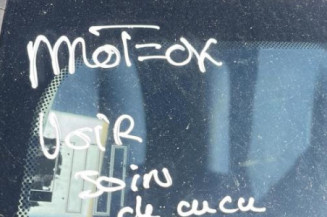 MOT=OK
VOIR
JOIN
de cucu